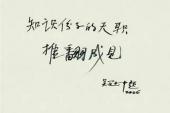 知识份子的天职
推翻成见